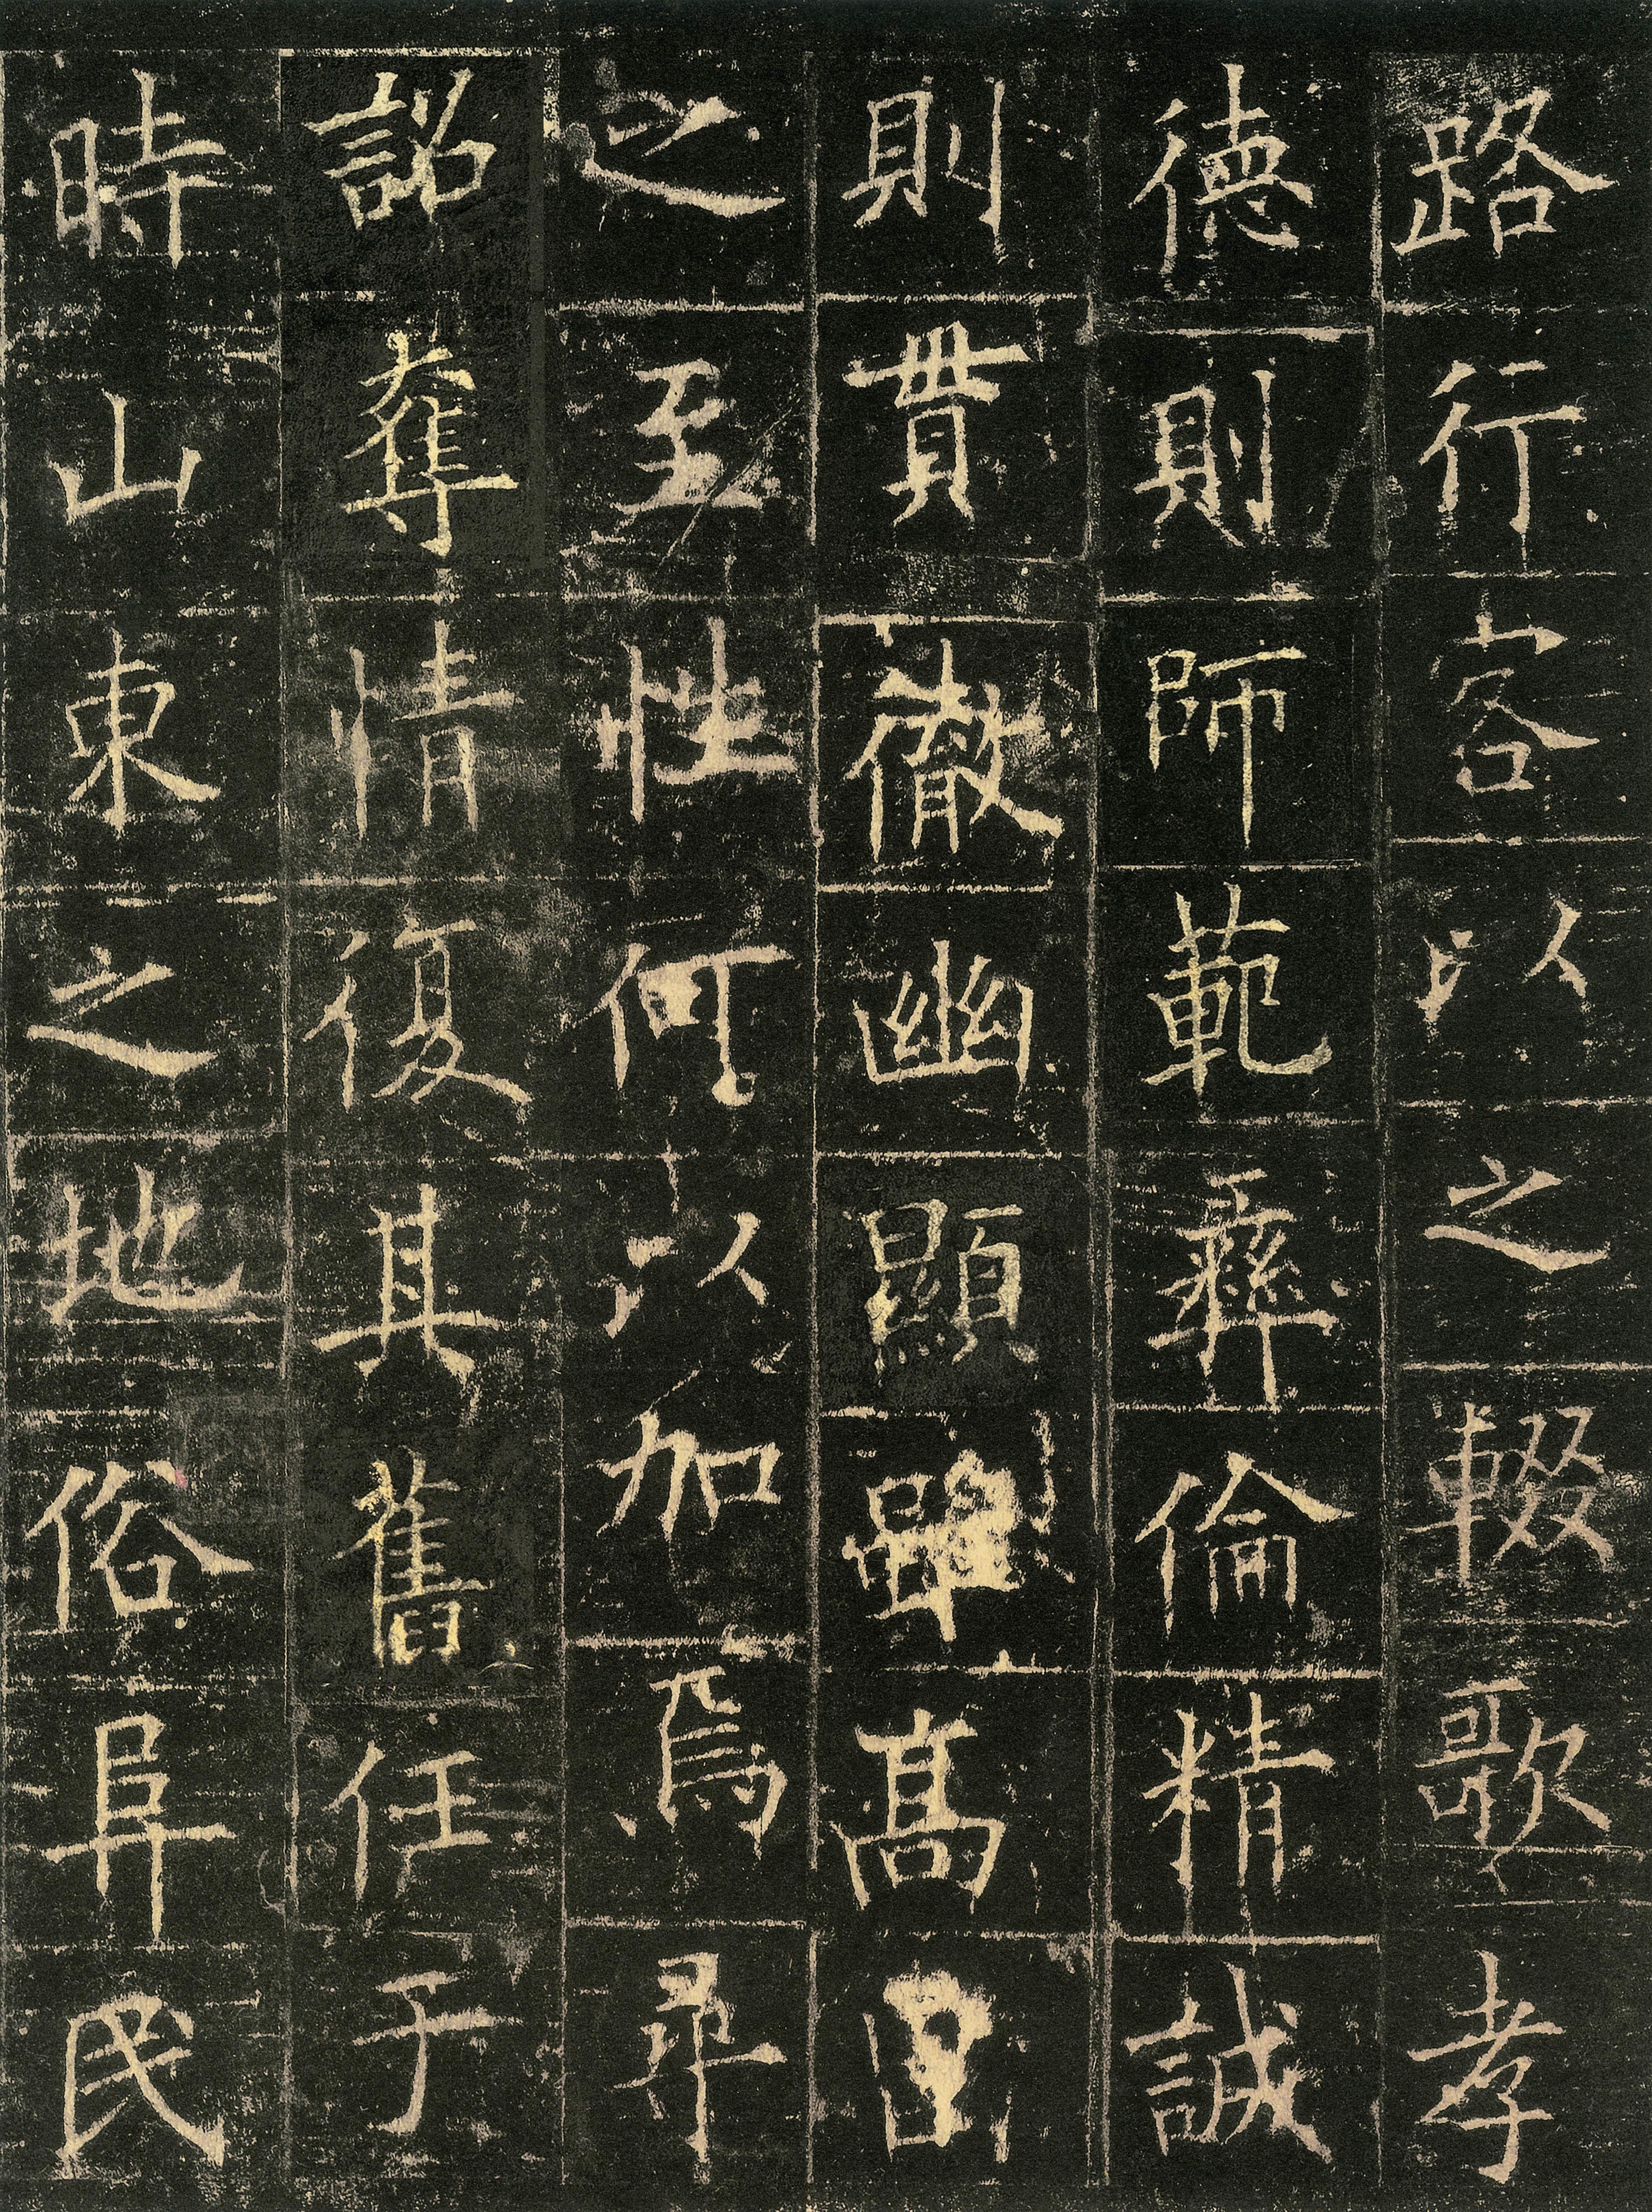 路行客以之輟歌孝
德則師範彝倫精誠
則貫徹幽顯雖髙曾
之至性何以加焉尋
詔奪情復其舊任于
時山東之地俗阜民